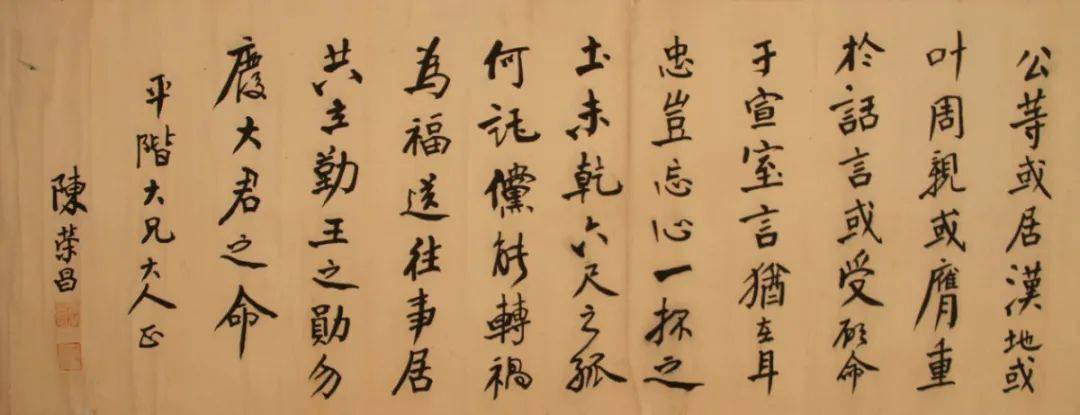 公等或居漢地或
叶周親或膺重
於話言或受顧命
于宣室言猶在耳
忠豈忘心一抔之
土未乾六尺之孤
何託儻能轉禍
為福送往事居
共立勤王之勛勿
廢大君之命
平階大兄大人正
陳榮昌